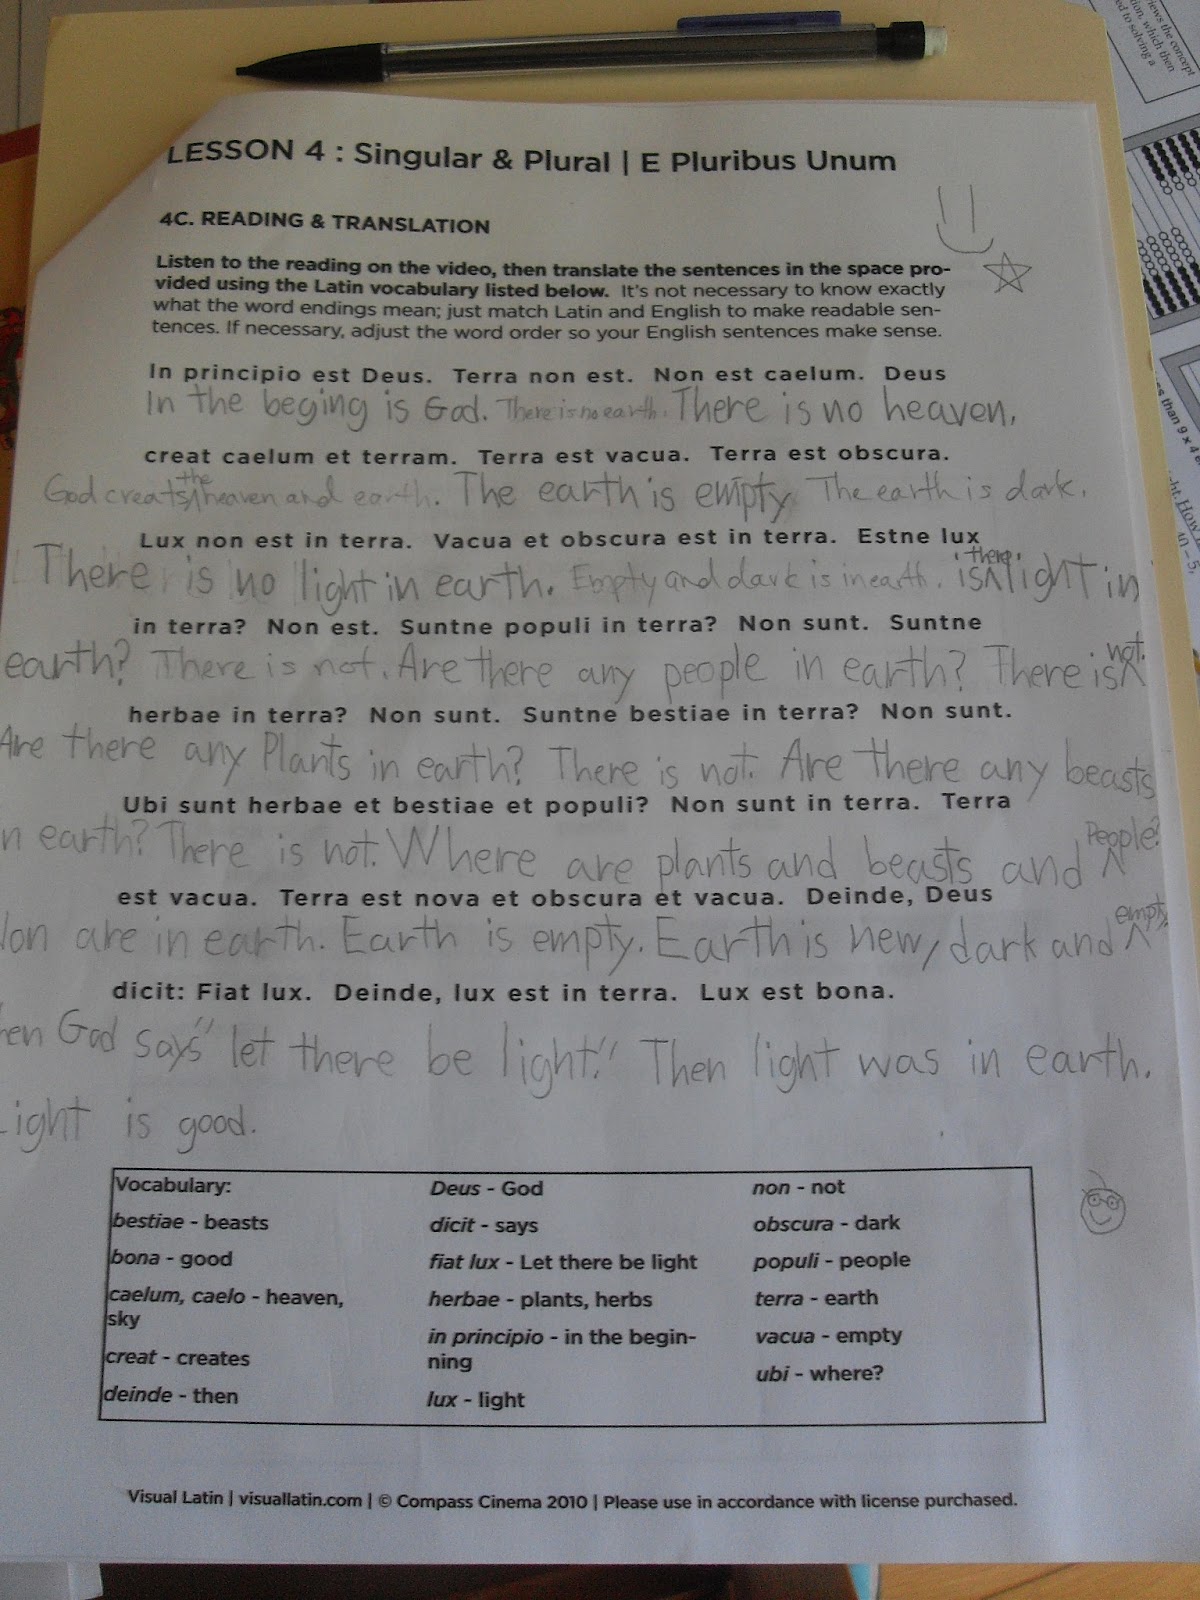 LESSON 4 : Singular & Plural | E Pluribus Unum
4C. READING & TRANSLATION
Listen to the reading on the video, then translate the sentences in the space pro-
vided using the Latin vocabulary listed below. It's not necessary to know exactly
what the word endings mean; just match Latin and English to make readable sen-
tences. If necessary, adjust the word order so your English sentences make sense.
In principio est Deus. Terra non est. Non est caelum. Deus
In the beging is God. There is no earth. There is no heaven.
creat caelum et terram. Terra est vacua. Terra est obscura.
God creats the heaven and earth. The earth is empty. The earth is dark.
Lux non est in terra. Vacua et obscura est in terra. Estne lux
There is no light in earth. Empty and dark is in earth. is there light in
in terra? Non est. Suntne populi in terra? Non sunt. Suntne
earth? There is not. Are there any people in earth? There is not.
herbae in terra? Non sunt. Suntne bestiae in terra? Non sunt.
Are there any Plants in earth? There is not. Are there any beasts
Ubi sunt herbae et bestiae et populi? Non sunt in terra. Terra
n earth? There is not. Where are plants and beasts and People?
est vacua. Terra est nova et obscura et vacua. Deinde, Deus
Non are in earth. Earth is empty. Earth is new, dark and empty.
dicit: Fiat lux. Deinde, lux est in terra. Lux est bona.
hen God says "let there be light." Then light was in earth.
Light is good.
Vocabulary:
bestiae - beasts
bona - good
caelum, caelo - heaven,
sky
creat - creates
deinde - then
Deus - God
dicit - says
fiat lux - Let there be light
herbae - plants, herbs
in principio - in the begin-
ning
lux - light
non - not
obscura - dark
populi - people
terra - earth
vacua - empty
ubi - where?
Visual Latin | visuallatin.com | © Compass Cinema 2010 | Please use in accordance with license purchased.